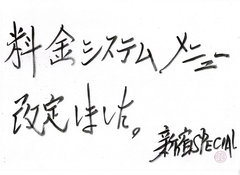 料金システムメニュー
改定しました。
新宿SPECIAL